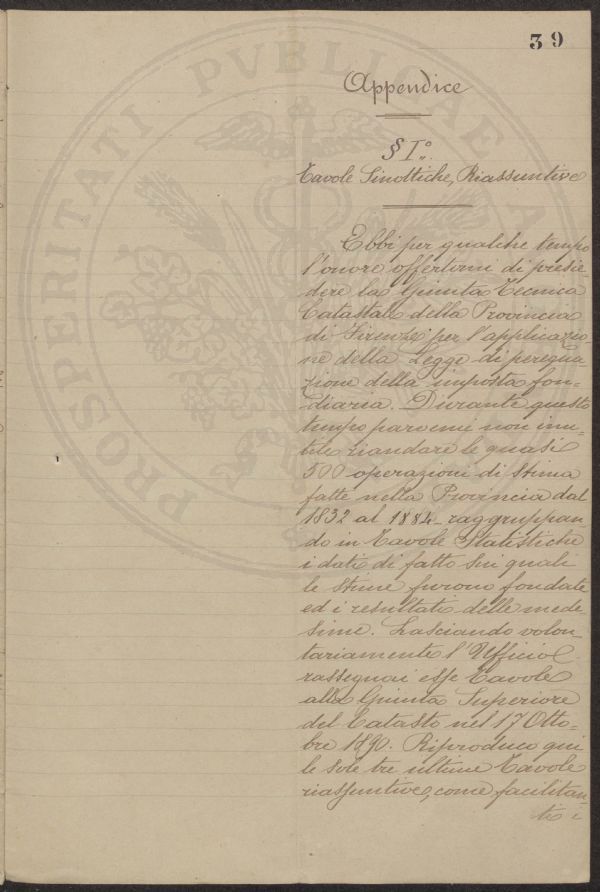 39
Appendice
§ I.º
Tavole Sinottiche, Riassuntive
Ebbi per qualche tempo
l'onore offertomi di presie=
dere la Giunta Tecnica
Catastale della Provincia
di Firenze per l'applicazio=
ne della Legge di perequa=
zione della imposta fon=
diaria. Durante questo
tempo parvemi non inu=
tile riandare le quasi
500 operazioni di Stima
fatte nella Provincia dal
1832 al 1884 raggruppan=
do in Tavole Statistiche
i dati di fatto sui quali
le Stime furono fondate
ed i resultati delle mede=
sime. Lasciando volon=
tariamente l'Ufficio
rassegnai esse Tavole
alla Giunta Superiore
del Catasto nel 17 Otto=
bre 1890. Riproduco qui
le sole tre ultime Tavole
riassuntive, come facilitan=
ti i
PROSPERITATI PVBLICAE A